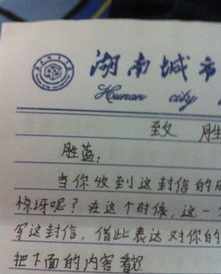 湖南城市
Hunan city
致
胜蓝：
当你收到这封信的
惊讶呢？在这个时候，这一
写这封信，借此表达对你的
把下面的内容看